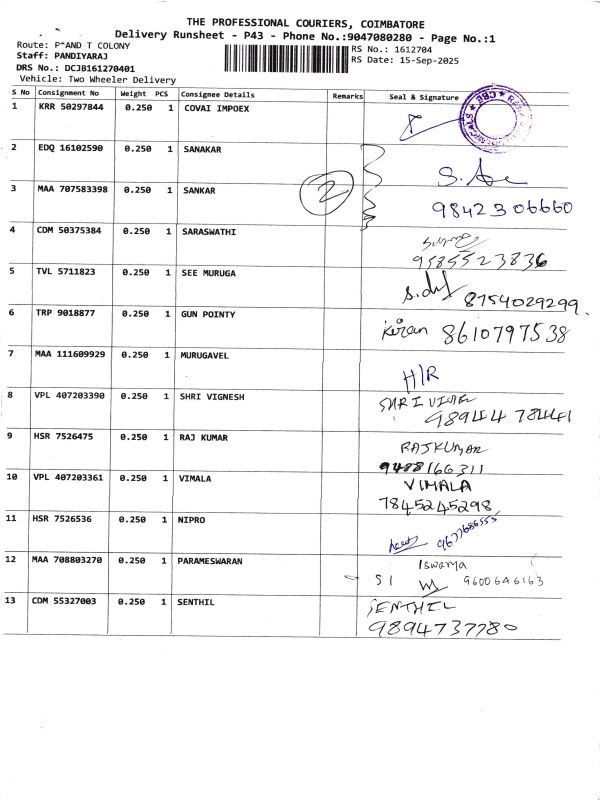 THE PROFESSIONAL COURIERS, COIMBATORE
Delivery Runsheet - P43 - Phone No.:9047080280 - Page No.:1
Route: P^AND T COLONY
RS No.: 1612704
Staff: PANDIYARAJ
RS Date: 15-Sep-2025
DRS No.: DCJB161270401
Vehicle: Two Wheeler Delivery
S No Consignment No Weight PCS Consignee Details Remarks Seal & Signature
1 KRR 50297844 0.250 1 COVAI IMPOEX
CBE
2 EDQ 16102590 0.250 1 SANAKAR
3 MAA 707583398 0.250 1 SANKAR 2
9842306660
4 CDM 50375384 0.250 1 SARASWATHI
9585523836
5 TVL 5711823 0.250 1 SEE MURUGA
8754029299
6 TRP 9018877 0.250 1 GUN POINTY
Kiran 8610797538
7 MAA 111609929 0.250 1 MURUGAVEL
H/R
8 VPL 407203390 0.250 1 SHRI VIGNESH
SHRI
98944 78441
9 HSR 7526475 0.250 1 RAJ KUMAR
RAJKUMAR
9488166311
10 VPL 407203361 0.250 1 VIMALA
VIMALA
7845245298
11 HSR 7526536 0.250 1 NIPRO
9677686555
12 MAA 708803270 0.250 1 PARAMESWARAN
Iswarya
S1 9600646163
13 CDM 55327003 0.250 1 SENTHIL
SENTHIL
9894737780